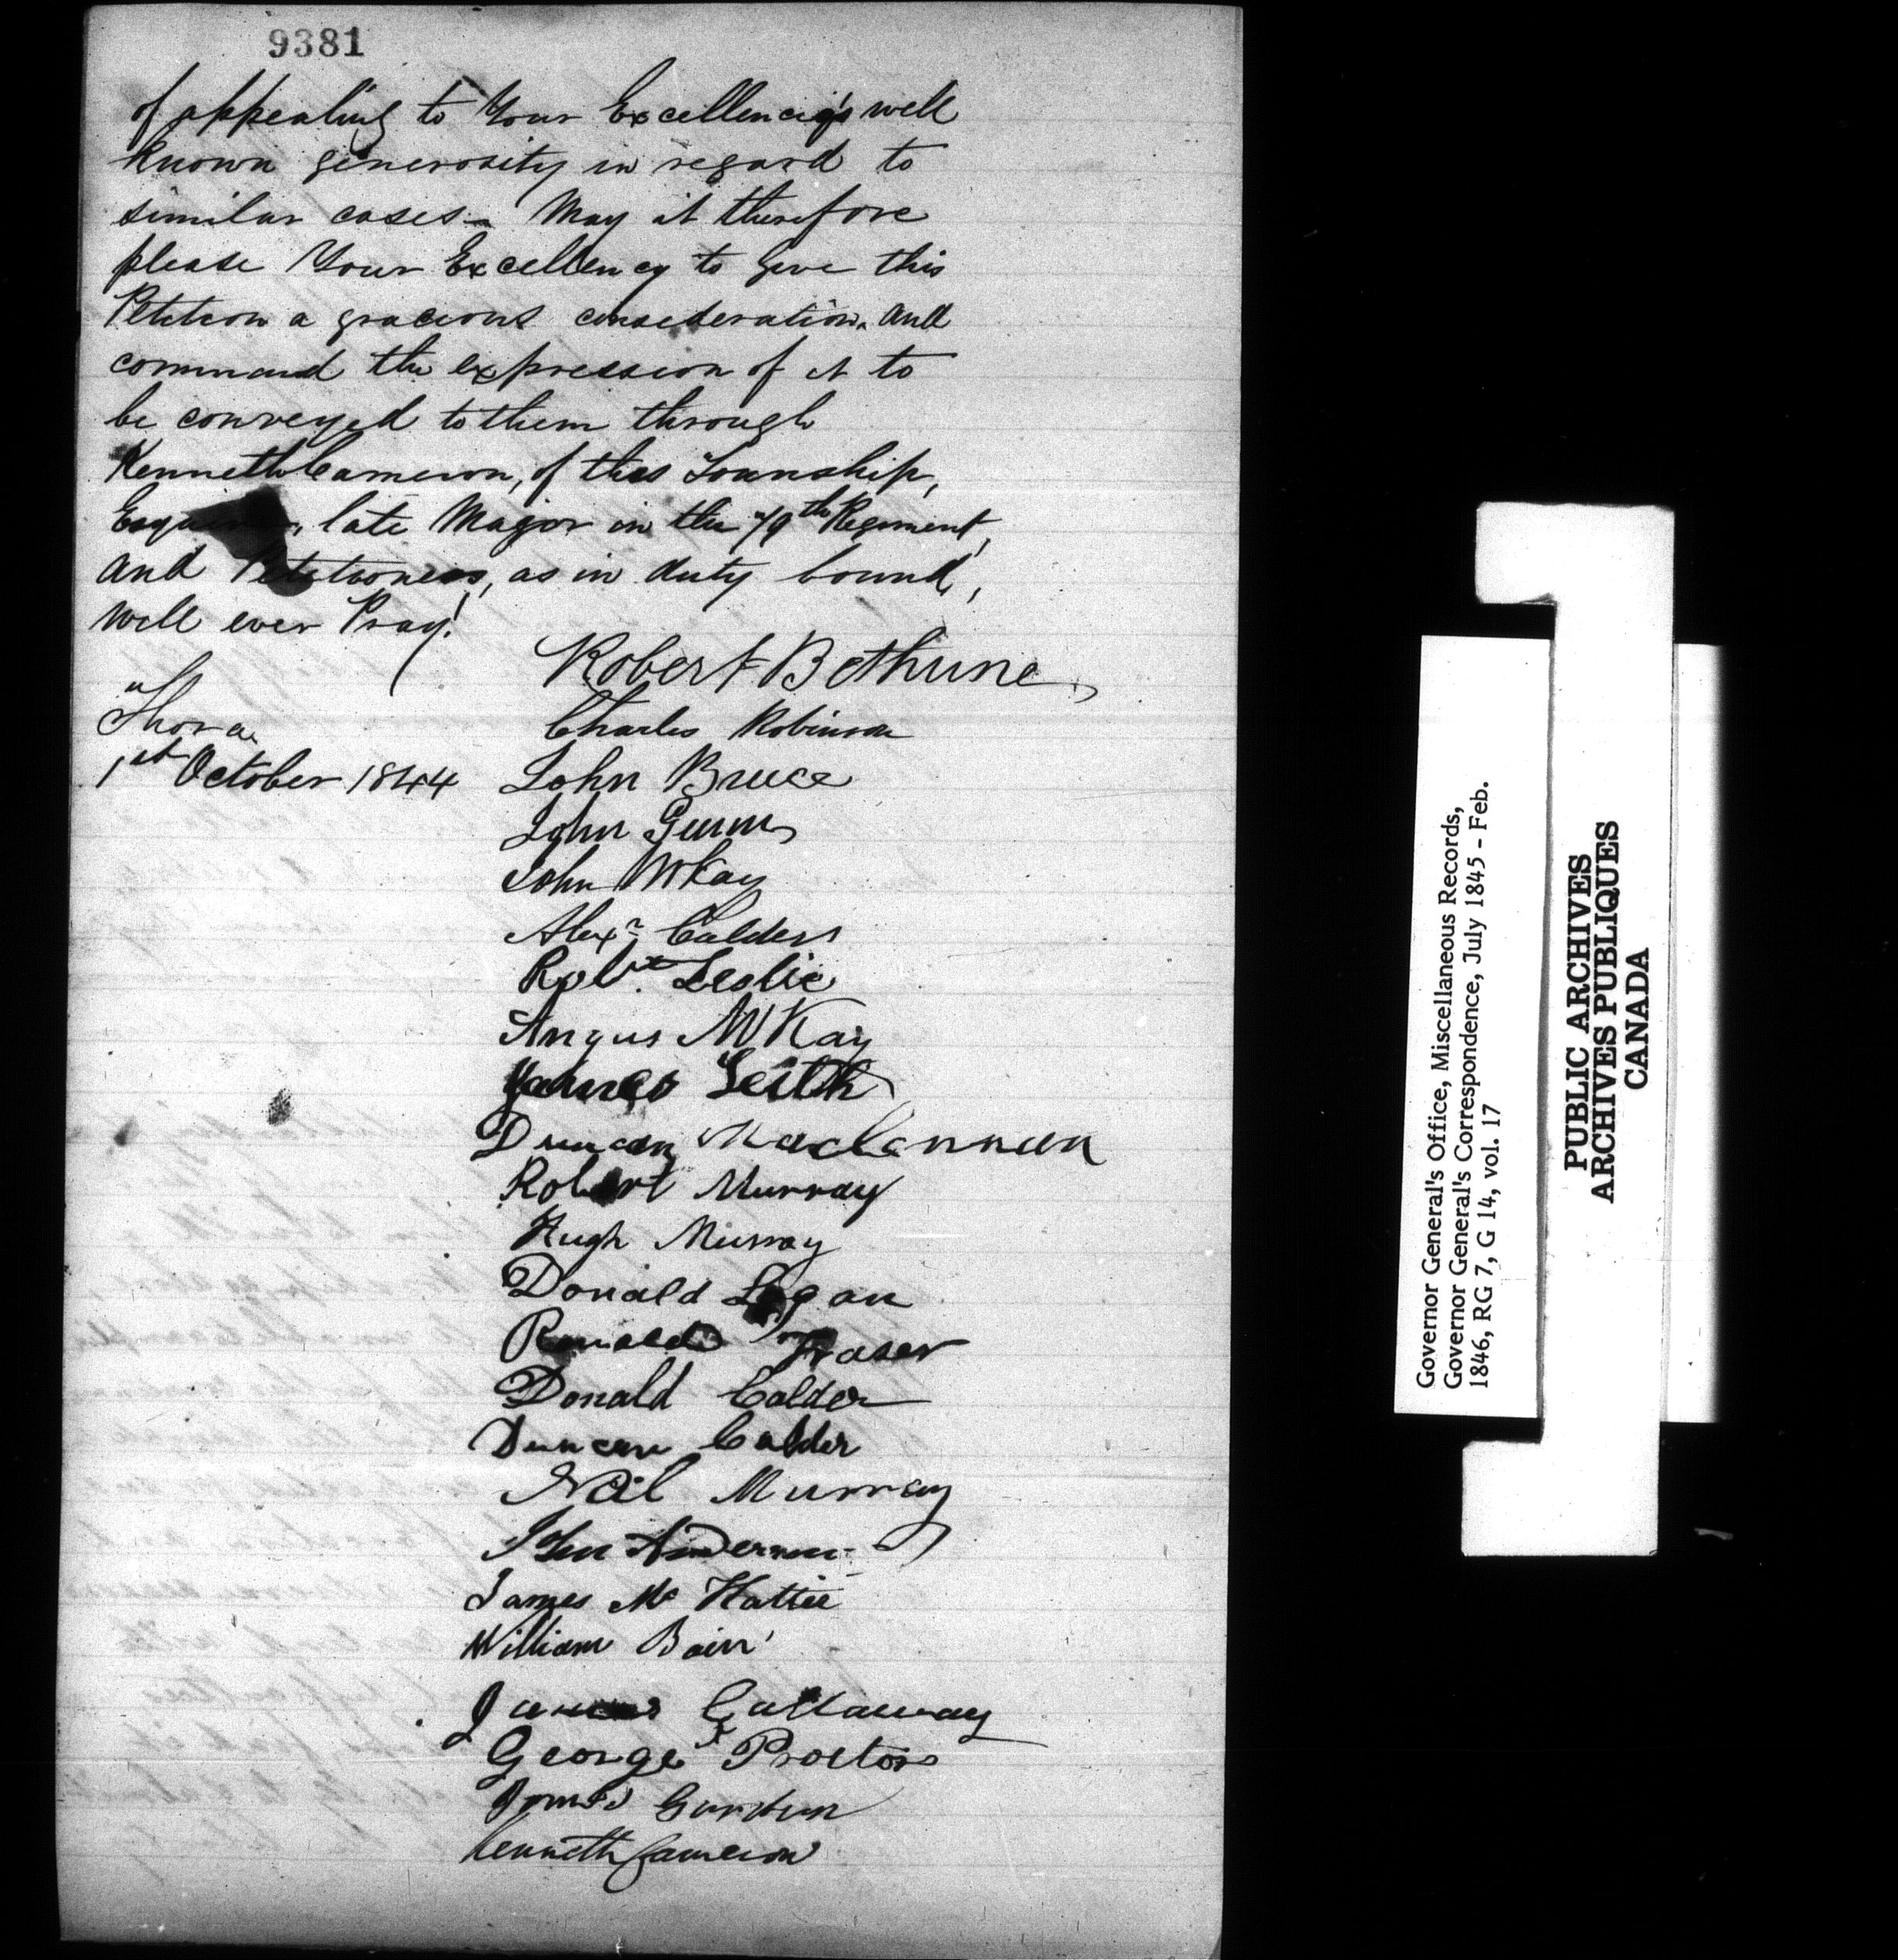 9381
of appealing to Your Excellency's well
known generosity in regard to
similar cases - May it therefore
please Your Excellency to give this
Petition a gracious consideration, and
command the expression of it to
be conveyed to them through
Kenneth Cameron, of this Township,
Esquire, late Major in the 79th Regiment,
and Petitioners, as in duty bound,
will ever Pray!
Robert Bethune
Thora
Charles Robinson
1st October 1844
John Bruce
John Gunn
John McKay
Alexr Calder
Robt. Leslie
Angus McKay
James Leith
Duncan MacLennan
Robert Murray
Hugh Murray
Donald Logan
Ronald Fraser
Donald Calder
Duncan Calder
Neil Murray
John Anderson
James Mc Hattie
William Bain
James Callaway
George Proctor
James Gordon
Kenneth Cameron
Governor General's Office, Miscellaneous Records,
Governor General's Correspondence, July 1845 - Feb.
1846, RG 7, G 14, vol. 17
PUBLIC ARCHIVES
ARCHIVES PUBLIQUES
CANADA